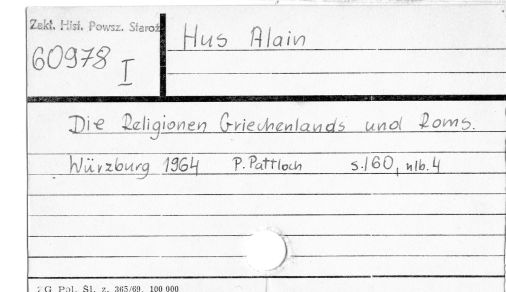 Zakł. Hist. Powsz. Staroż
60978 I
Hus Alain
Die Religionen Griechenlands und Roms.
Würzburg 1964 P. Pattloch s. 160, nlb. 4
G Pol. Śl. z. 365/69. 100 000